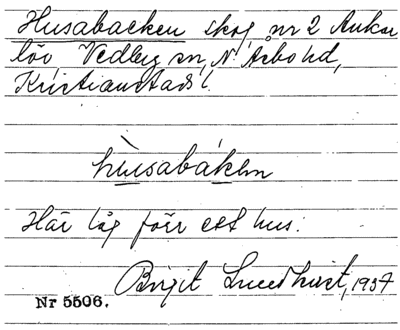 Husabacken skog nr 2 Ankar
löv, Vedby sn, N. Åsbo hd,
Kristianstads l.
hùsabákən
Här låg förr ett hus.
Birgit Lundhvist, 1937
Nr 5506.